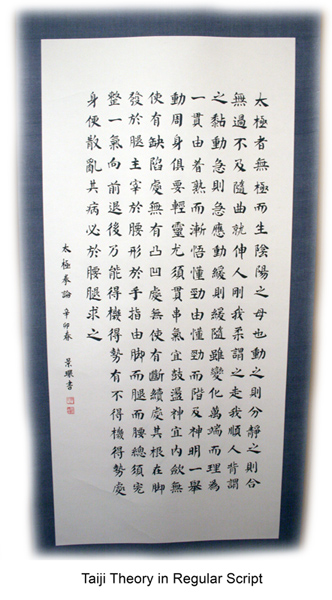 太極者無極而生陰陽之母也動之則分靜之則合
無過不及隨曲就伸人剛我柔謂之走我順人背謂
之黏動急則急應動緩則緩隨雖變化萬端而理為
一貫由着熟而漸悟懂勁由懂勁而階及神明一舉
動周身俱要輕靈尤須貫串氣宜鼓盪神宜內斂無
使有缺陷處無有凸凹處無使有斷續處其根在脚
發於腿主宰於腰形於手指由脚而腿而腰總須完
整一氣向前退後乃能得機得勢有不得機得勢處
身便散亂其病必於腰腿求之
太極拳論 辛卯春 景 書
Taiji Theory in Regular Script